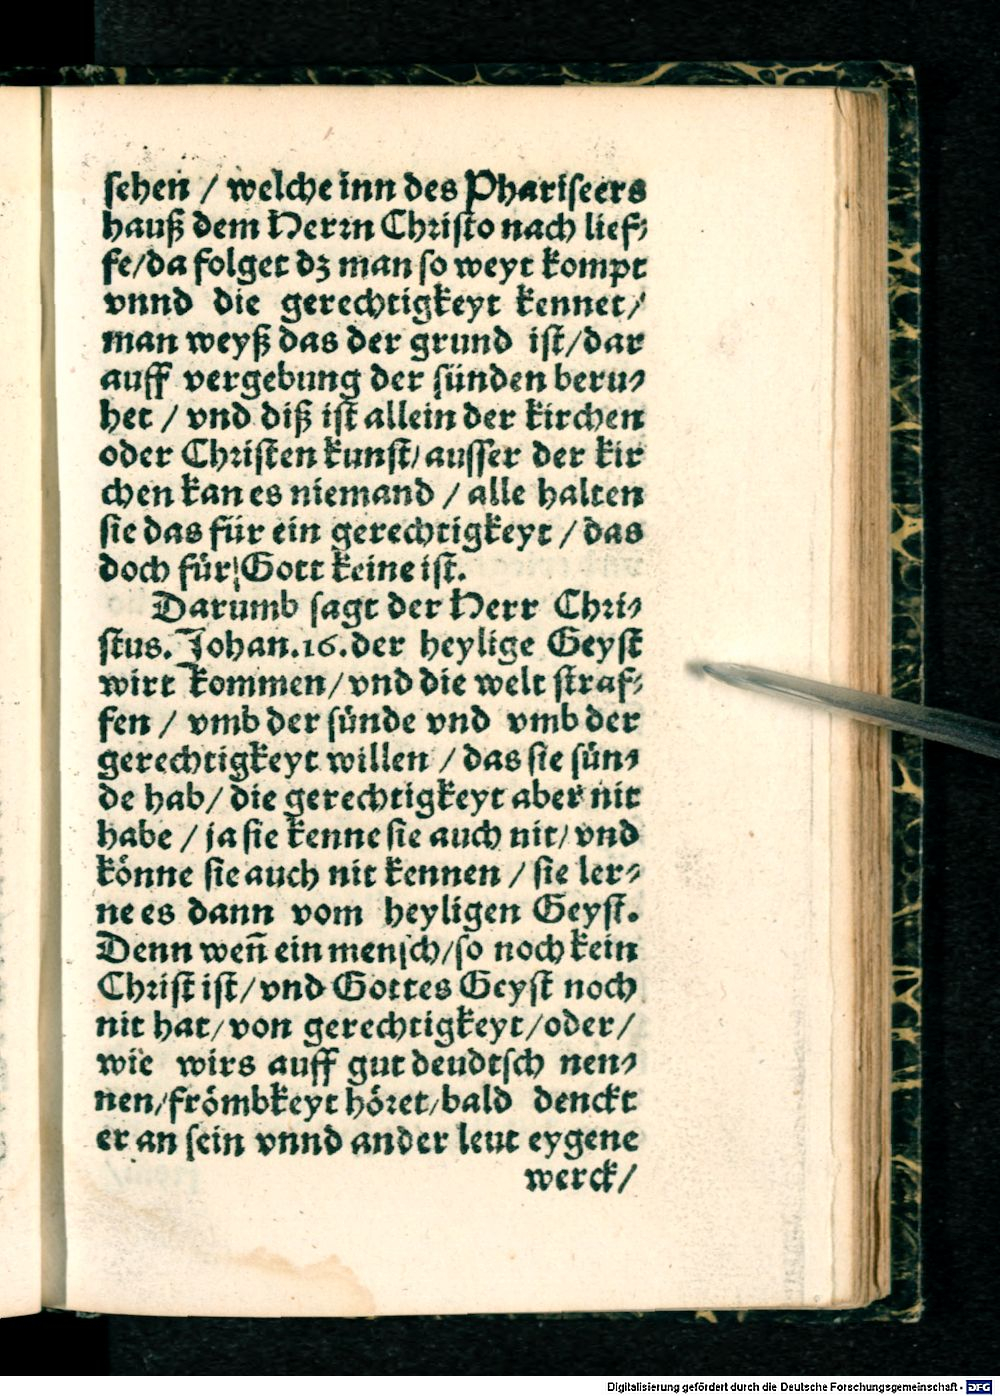 sehen / welche inn des Phariseers
hauß dem Herrn Christo nach lief⸗
fe/da folget dz man so weyt kompt
vnnd die gerechtigkeyt kennet/
man weyß das der grund ist/dar
auff vergebung der sünden beru⸗
het / vnd diß ist allein der kirchen
oder Christen kunst/ausser der kir
chen kan es niemand / alle halten
sie das für ein gerechtigkeyt / das
doch für Gott keine ist.
Darumb sagt der Herr Chri⸗
stus. Johan.16.der heylige Geyst
wirt kommen/vnd die welt straf⸗
fen / vmb der sünde vnd vmb der
gerechtigkeyt willen / das sie sün⸗
de hab/ die gerechtigkeyt aber nit
habe / ja sie kenne sie auch nit/vnd
könne sie auch nit kennen / sie ler⸗
ne es dann vom heyligen Geyst.
Denn weñ ein mensch/so noch kein
Christ ist/vnd Gottes Geyst noch
nit hat/von gerechtigkeyt/oder/
wie wirs auff gut deudtsch nen⸗
nen/frömbkeyt höret/bald denckt
er an sein vnnd ander leut eygene
werck/
Digitalisierung gefördert durch die Deutsche Forschungsgemeinschaft - DFG